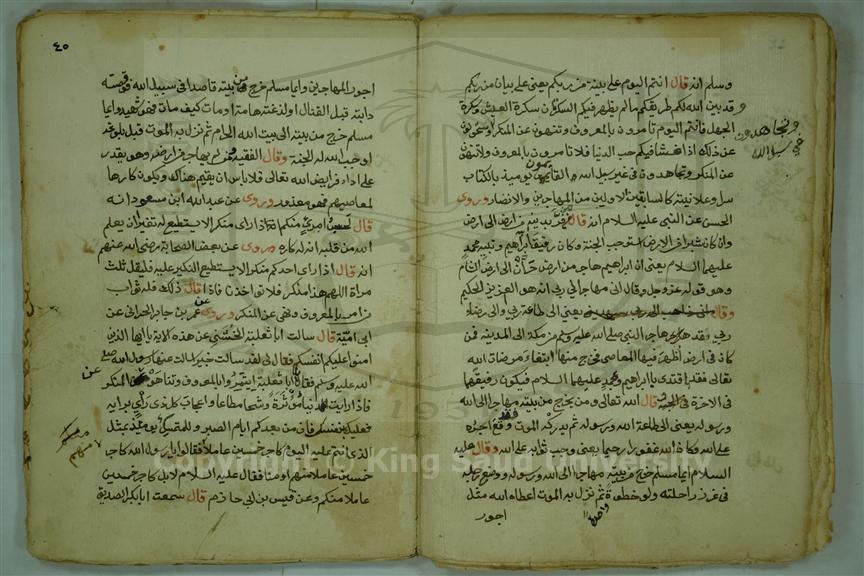 وسلم انه قال انتم اليوم على بينة من ربكم يعنى على بيان من ربكم
قد بين الله لكم طريقكم مالم يظهر فيكم السكرتان سكرة العيش وسكرة
الجهل فانتم اليوم تامرون بالمعروف وتنهون عن المنكر
عن ذلك اذا فشا فيكم حب الدنيا فلا تامرون بالمعروف ولا تنهون
عن المنكر وتجاهدون فى غير سبيل الله والقائمون يومئذ بالكتاب
سرا وعلانية كالسابقين الاولين من المهاجرين والانصار وروى
الحسن عن النبى عليه السلام انه قال من فر بدينه من ارض الى ارض
وان كان شبرا من الارض استوجب الجنة وكان رفيق ابرهيم ونبيه محمد
عليهما السلام يعنى ان ابراهيم هاجر من ارض حران الى ارض الشام
وهو قوله عز وجل وقال انى مهاجر الى ربى انه هو العزيز الحكيم
وقال انى ذاهب الى ربى سيهدين يعنى الى طاعة ربى والى رضاء
ربى وقد هاجر النبى صلى الله عليه وسلم من مكة الى المدينة فمن
كان فى ارض اظهر فيها المعاصى فخرج منها ابتغاء مرضات الله
تعالى فقد اقتدى بابراهيم ومحمد عليهما السلام فيكون رفيقهما
فى الاخرة فى الجنة وقال الله تعالى ومن يخرج من بيته مهاجرا الى الله
ورسوله يعنى الى طاعة الله ورسوله ثم يدركه الموت فقد وقع اجره
على الله وكان الله غفورا رحيما يعنى وجب ثوابه على الله وقال عليه
السلام ايما مسلم خرج من بيته مهاجرا الى الله ورسوله ووضع رجله
فى غرز راحلته ولو خطوة واحدة ثم نزل به الموت اعطاه الله مثل
اجور
وتجاهدون
فى سبيل الله
٤٠
اجور المهاجرين وايما مسلم خرج من بيته قاصدا فى سبيل الله فوقصته
دابته قبل القتال او لدغته هامة او مات كيف مات فهو شهيد وايما
مسلم خرج من بيته الى بيت الله الحرام ثم نزل به الموت قبل بلوغه
اوجب الله له الجنة وقال الفقيه فمن لم يهاجر من ارضه وهو يقدر
على اداء فرايض الله تعالى فلا باس ان يقيم هناك ويكون كارها
لمعاصيهم فهو معذور وروى عن عبد الله ابن مسعود انه
قال لحسب امرئ منكم اذا راى منكر الا يستطيع له تغيرا ان يعلم
الله من قلبه انه له كاره وروى عن بعض الصحابة رضى الله عنهم
انه قال اذا راى احدكم منكر الا يستطيع النكير عليه فليقل ثلث
مراة اللهم هذا منكر فلا تواخذنا فاذا قال ذلك فله ثواب
من امر بالمعروف ونهى عن المنكر وروى عن عمر بن جابر
ابى امية قال سالت ابا ثعلبة الخشنى عن هذه الاية يا ايها الذين
امنوا عليكم انفسكم فقال لى لقد سالت خبيرا سالت عنها رسول الله صلى
الله عليه وسلم فقال يا ابا ثعلبة ايتمروا بالمعروف وتناهوا عن المنكر
فاذا رايت دنيا مؤثرة وشحا مطاعا واعجاب كل ذى راى برايه
فعليك بنفسك فان من بعدكم ايام الصبر وللمتمسك يومئذ بمثل
الذى انتم عليه اليوم كاجر خمسين عاملا فقالوا يا رسول الله كاجر
خمسين عاملا منهم او منا فقال عليه السلام لا بل كاجر خمسين
عاملا منكم وعن قيس بن ابى حازم قال سمعت ابا بكر الصديق
عن
منهم
Copyright © King Saud University